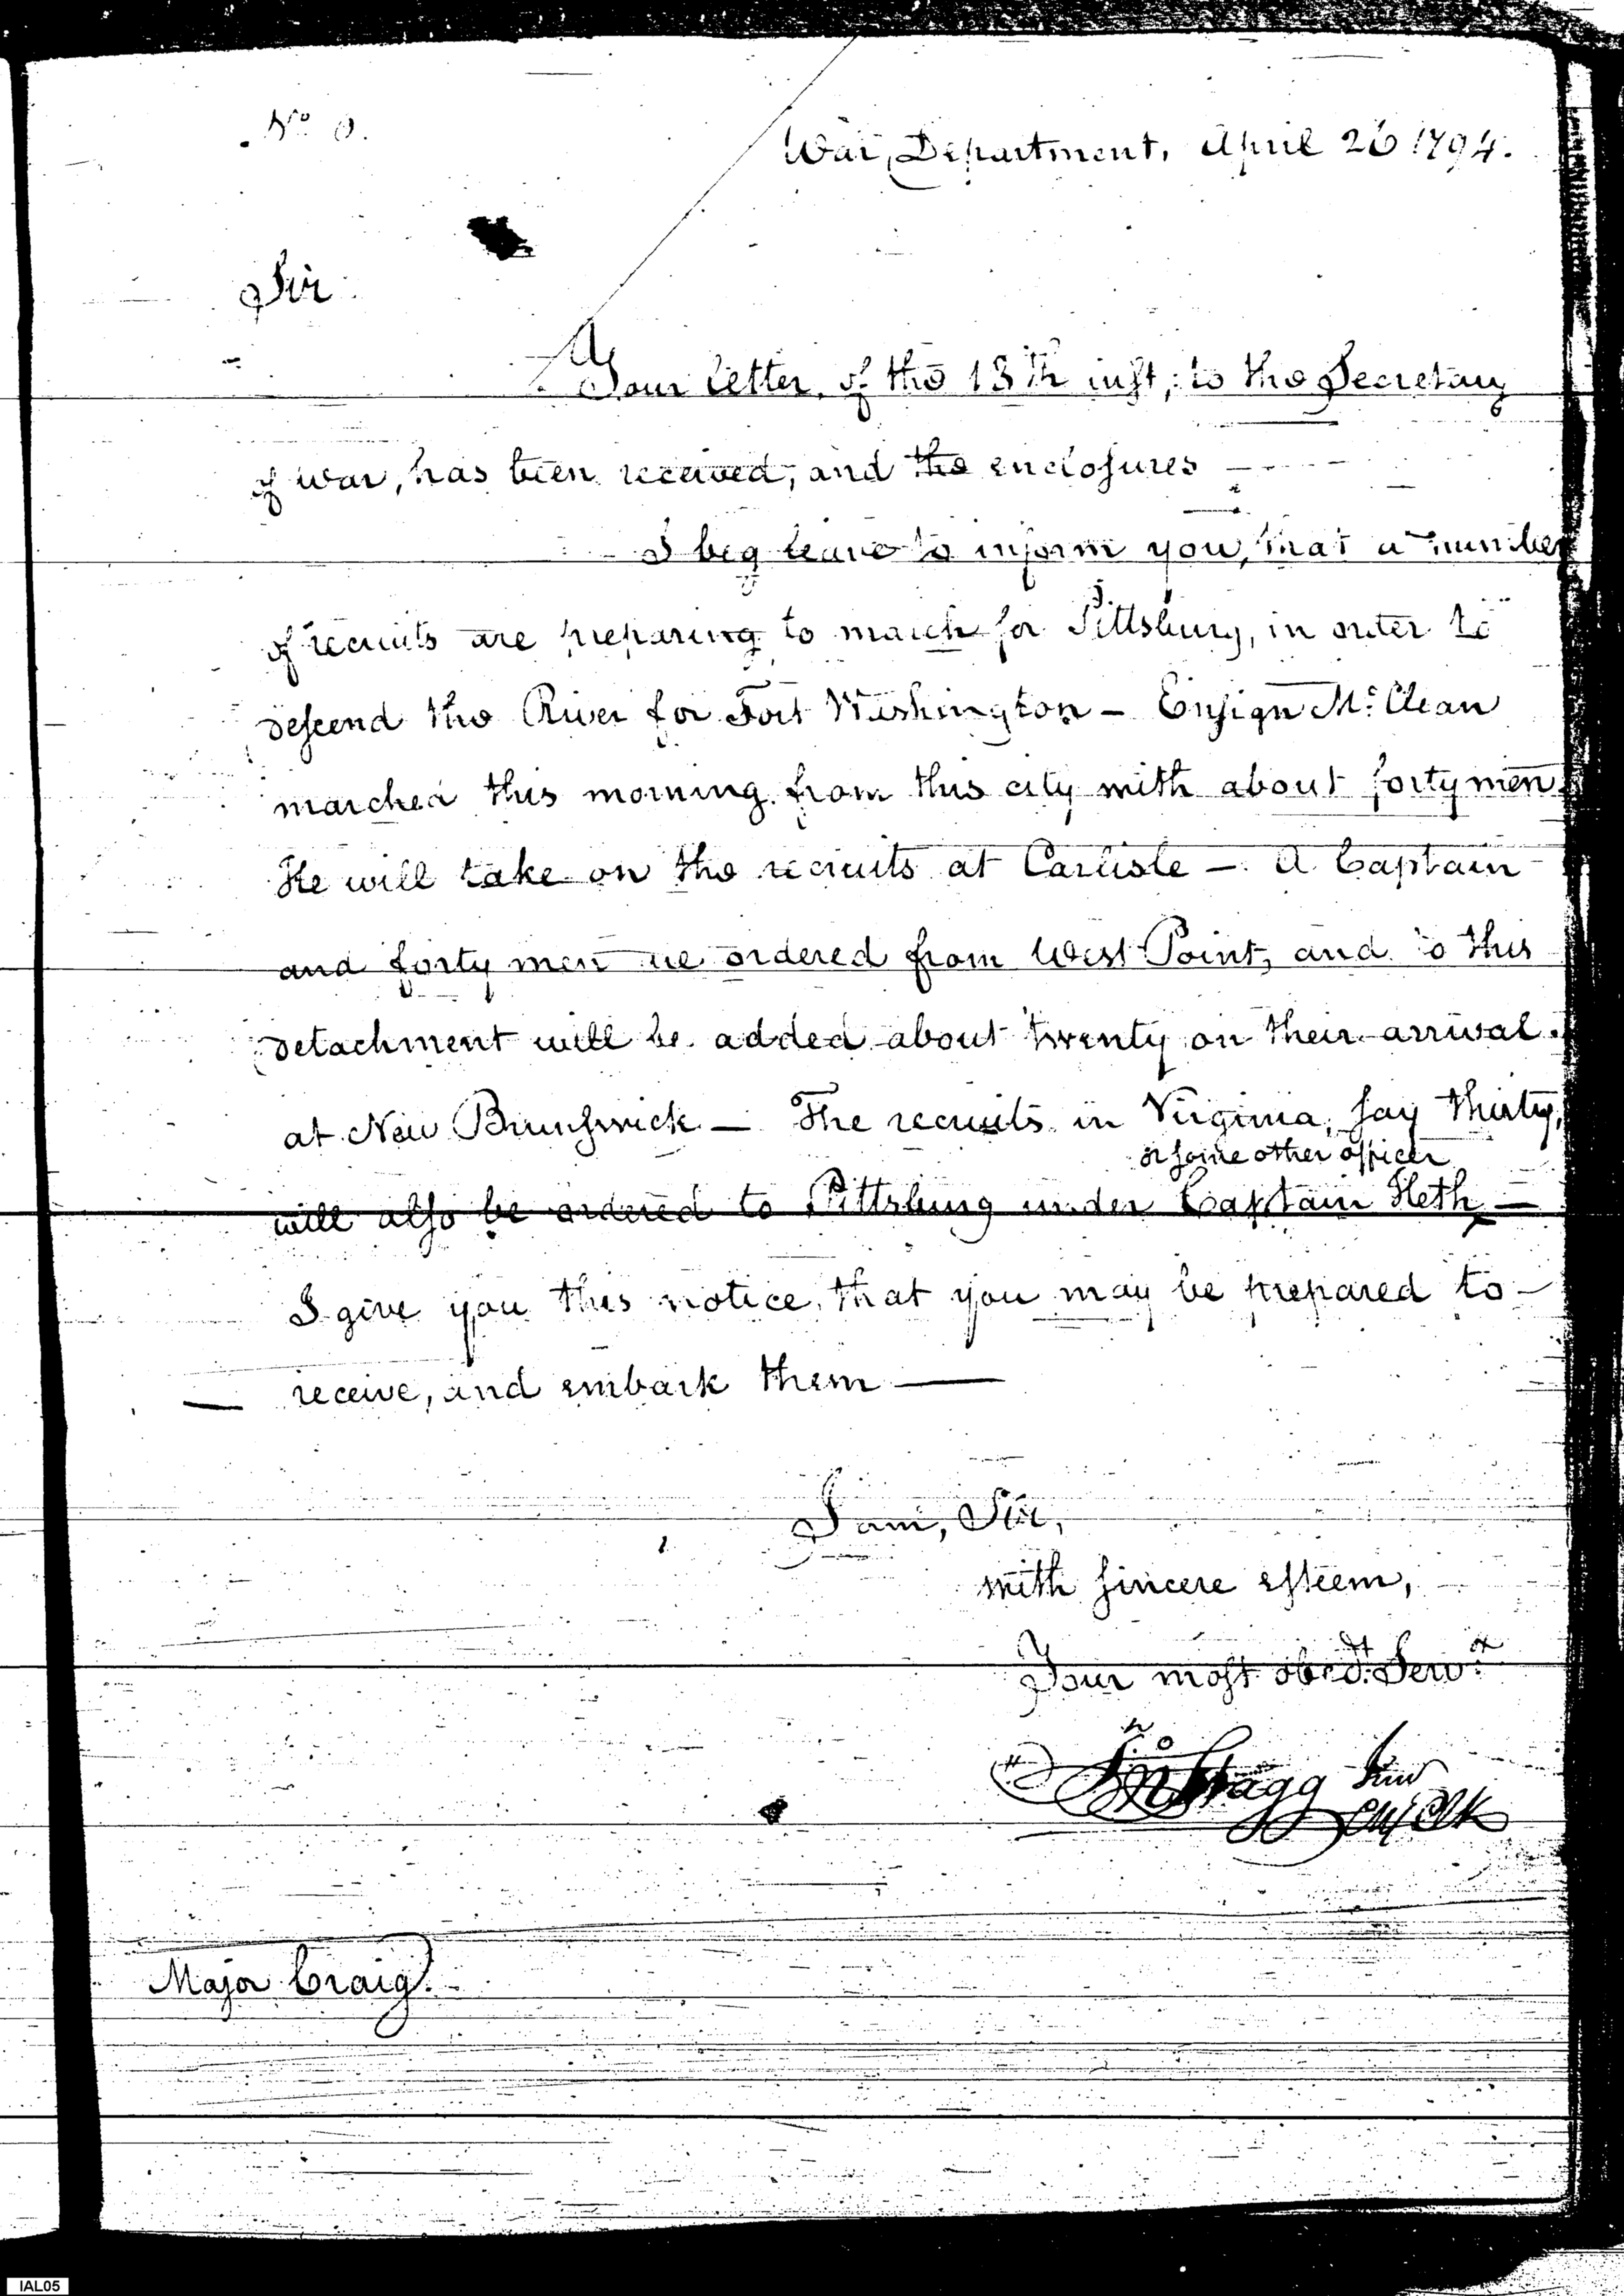 No 0.
War Department, April 26 1794.
Sir
Your letter of the 18th inst; to the Secretary
of war, has been received, and the enclosures
I beg leave to inform you, that a number
of recruits are preparing to march for Pittsburg, in order to
descend the River for Fort Washington — Ensign Mc: Clean
marched this morning from this city with about forty men
He will take on the recruits at Carlisle — A Captain
and forty men are ordered from West Point, and to this
detachment will be added about twenty on their arrival
at New Brunswick — The recruits in Virginia, say thirty,
or some other officer
will also be ordered to Pittsburg under Captain Heth —
I give you this notice, that you may be prepared to
receive, and embark them —
I am, Sir,
with sincere esteem,
Your most obedt: Servt:
Jno Stagg Junr
Ch. Clk
Major Craig.
IAL05